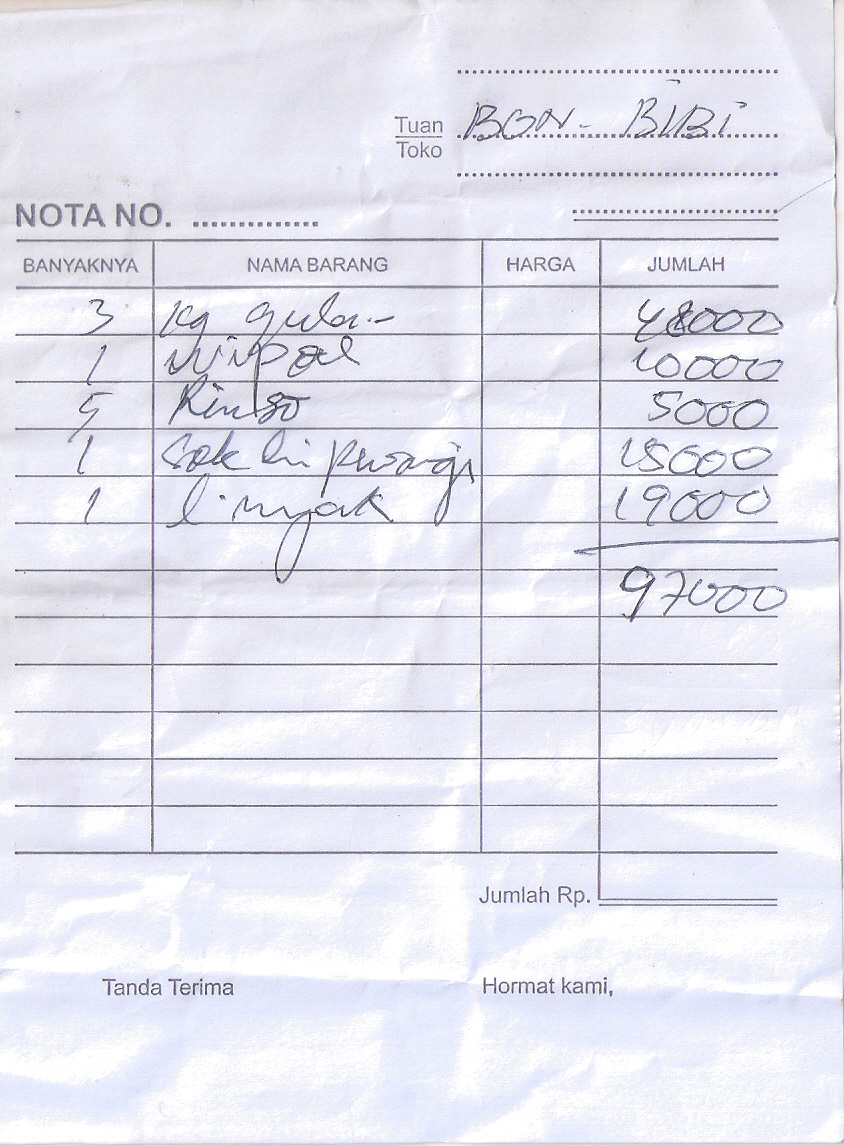 Tuan BON - BIBI
Toko
NOTA NO.
BANYAKNYA NAMA BARANG HARGA JUMLAH
3 kg gula.- 48000
1 10000
5 Rinso 5000
1 Soklin pwangi 15000
1 minyak 19000
97000
Jumlah Rp.
Tanda Terima Hormat kami,